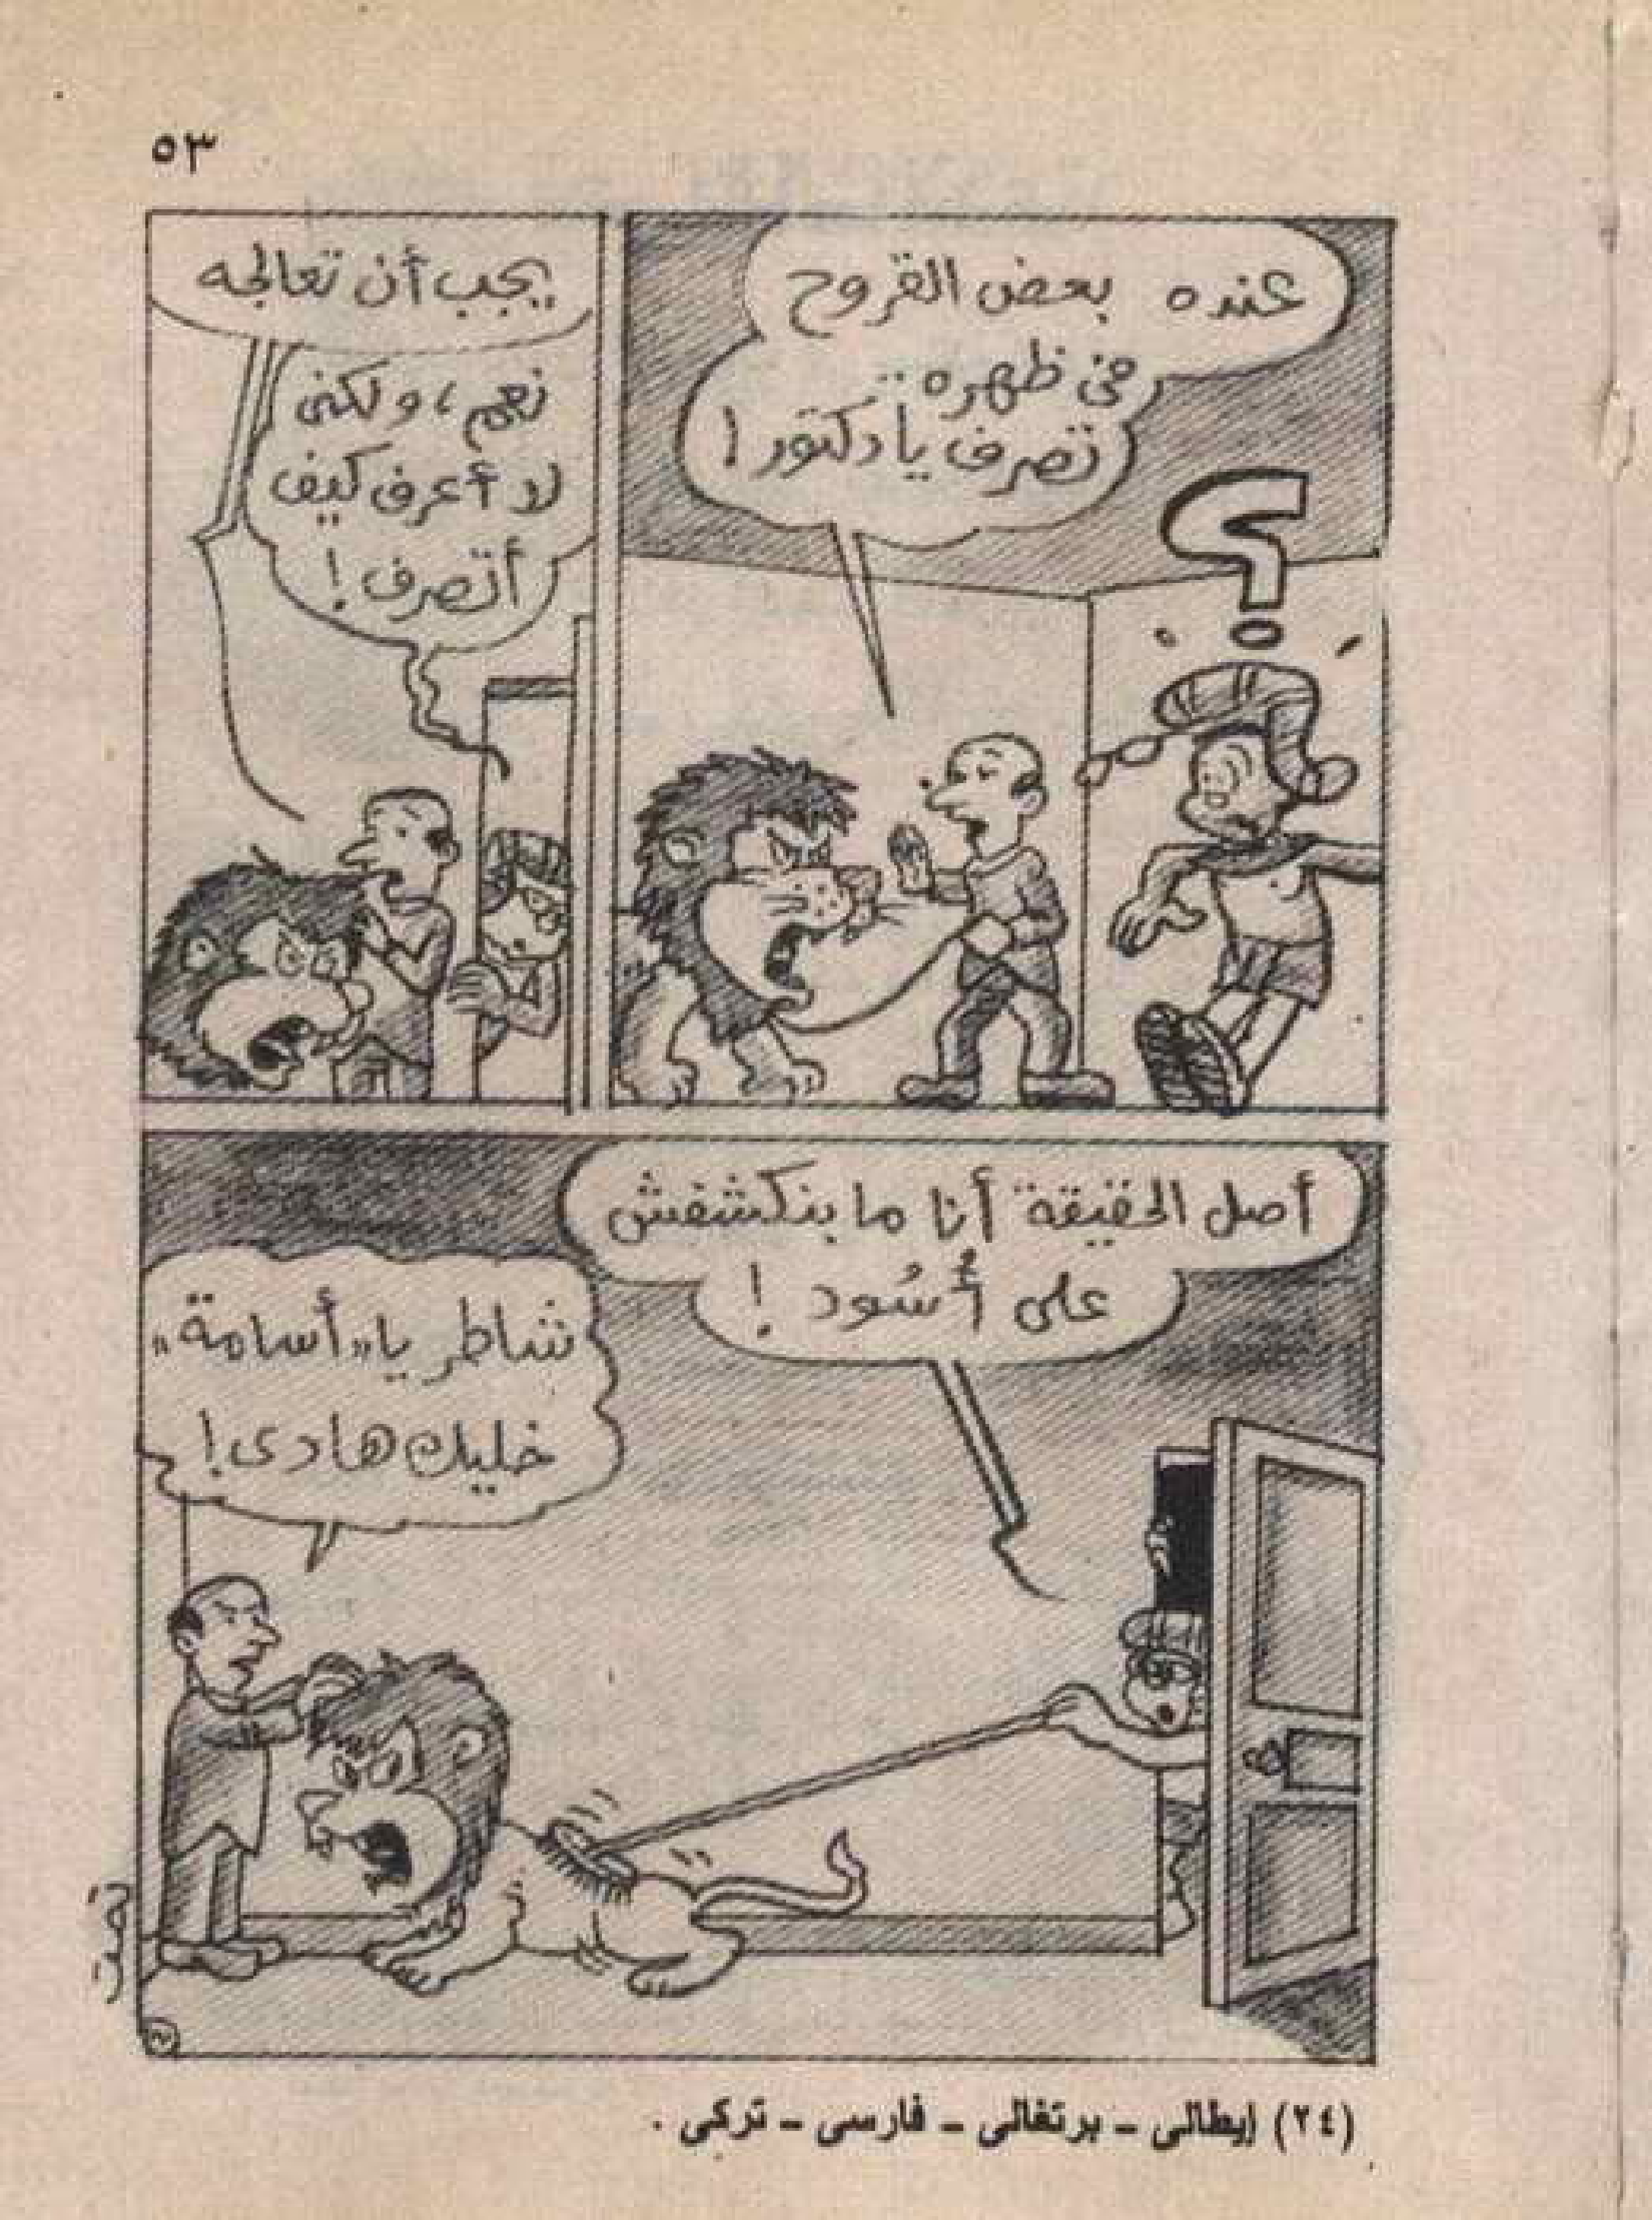 ٥٣
عنده بعض القروح
فى ظهره..
تصرف يا دكتور!
؟
يجب أن تعالجه
نعم، ولكنى
لا أعرف كيف
أتصرف!
أصل الحقيقة أنا ما بنكشفش
على أُسُود!
شاطر يا «أسامة»
خليك هادى!
(٢٤) إيطالى - برتغالى - فارسى - تركى .